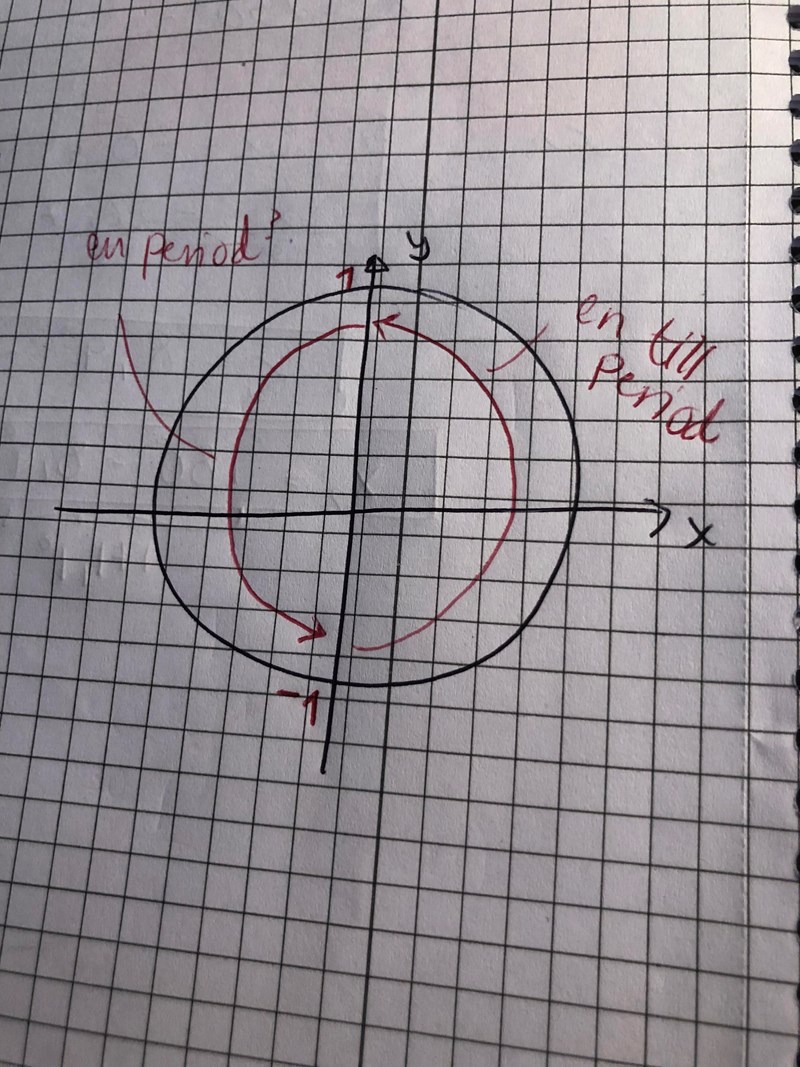 en period?
y
1
en till
period
x
-1